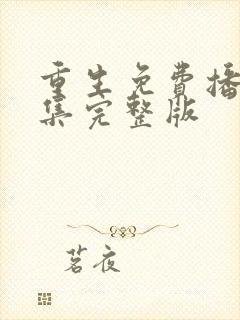 重生免费播
集完整版
茗夜